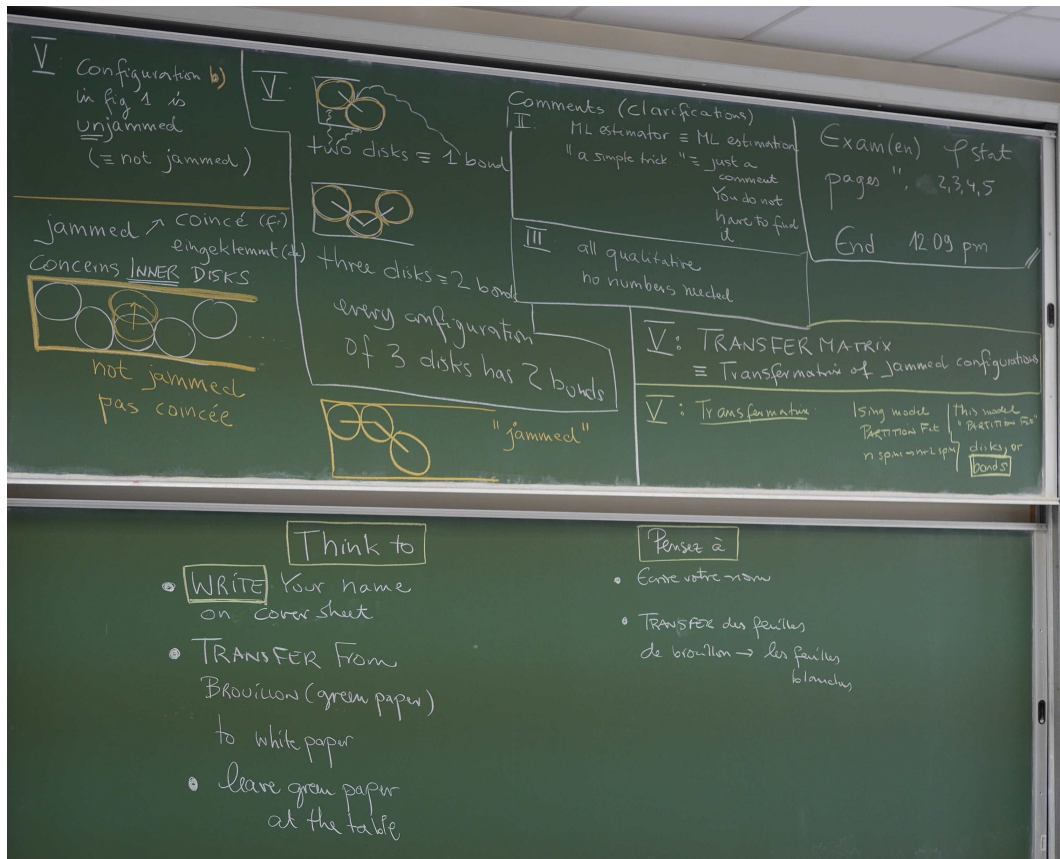 V Configuration b)
in fig 1 is
unjammed
(≡ not jammed)
jammed ↗ coincé (fr)
eingeklemmt (de)
Concerns INNER DISKS
not jammed
pas coincée
V.
two disks ≡ 1 bond
three disks = 2 bonds
every configuration
of 3 disks has 2 bonds
"jammed"
Comments (clarifications)
II ML estimator ≡ ML estimation
"a simple trick" ≡ just a
comment
You do not
have to find
it
III all qualitative
no numbers needed
Exam(en) φstat
pages 2,3,4,5
End 12 09 pm
V: TRANSFER MATRIX
≡ Transfermatrix of jammed configurations
V: Transfermatrix
Ising model
PARTITION Fct
n spin → n-1 spin
this model
"PARTITION Fct"
disks, or
bonds
Think to
• WRITE Your name
on cover sheet
• TRANSFER From
BROUILLON (green paper)
to white paper
• leave green paper
at the table
Pensez à
• Ecrire votre nom
• TRANSFER des feuilles
de brouillon → les feuilles
blanches